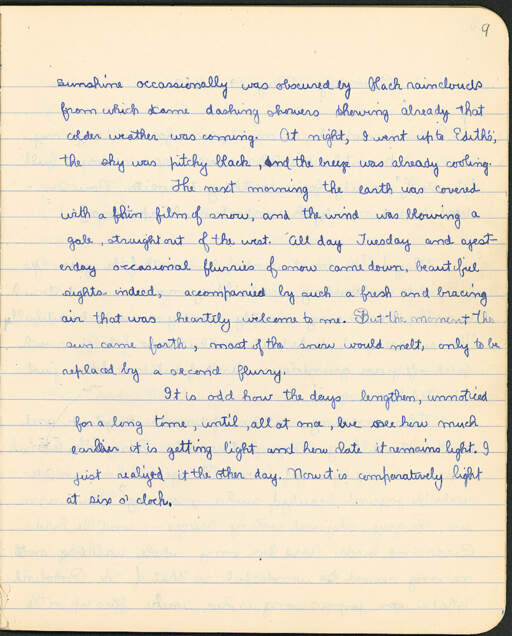 9
sunshine occassionally was obscured by black rainclouds
from which came dashing showers showing already that
colder weather was coming. At night, I went up to Edith's,
the sky was pitchy black, and the breeze was already cooling.
The next morning the earth was covered
with a thin film of snow, and the wind was blowing a
gale, straight out of the west. All day Tuesday and yest-
erday occasional flurries of snow came down, beautiful
sights indeed, accompanied by such a fresh and bracing
air that was heartily welcome to me. But the moment the
sun came forth, most of the snow would melt, only to be
replaced by a second flurry.
It is odd how the days lengthen, unnoticed
for a long time, until, all at once, we see how much
earlier it is getting light and how late it remains light. I
just realized it the other day. Now it is comparatively light
at six o'clock.